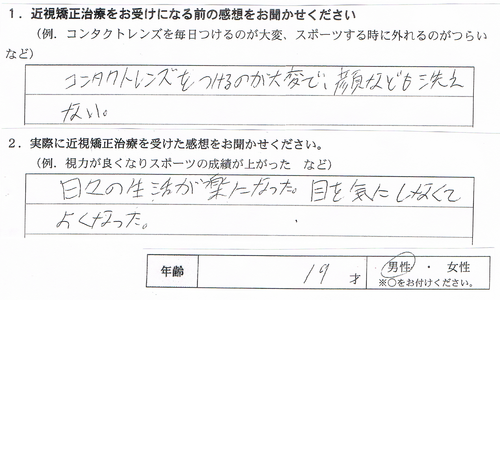 1．近視矯正治療をお受けになる前の感想をお聞かせください
（例．コンタクトレンズを毎日つけるのが大変、スポーツする時に外れるのがつらい
など）
コンタクトレンズをつけるのが大変で、顔なども洗え
ない。
2．実際に近視矯正治療を受けた感想をお聞かせください。
（例．視力が良くなりスポーツの成績が上がった　など）
日々の生活が楽になった。目を気にしなくて
よくなった。
年齢 19 才 男性 ・ 女性
※○をお付けください。